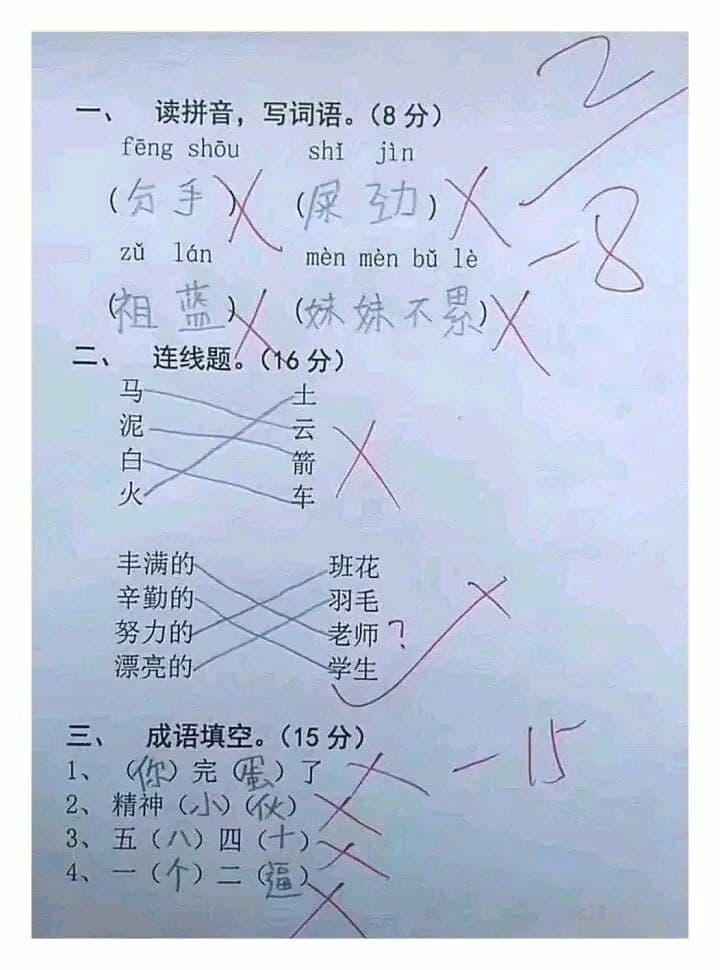 2
一、 读拼音，写词语。（8分）
fēng shōu shǐ jìn
（分手） （屎 劲）
-8
zǔ lán mèn mèn bǔ lè
（祖蓝） （妹妹不累）
二、 连线题。（16分）
马 土
泥 云
白 箭
火 车
丰满的 班花
辛勤的 羽毛
努力的 老师？
漂亮的 学生
三、 成语填空。（15分）
-15
1、（你）完（蛋）了
2、精神（小）（伙）
3、五（八）四（十）
4、一（个）二（逼）